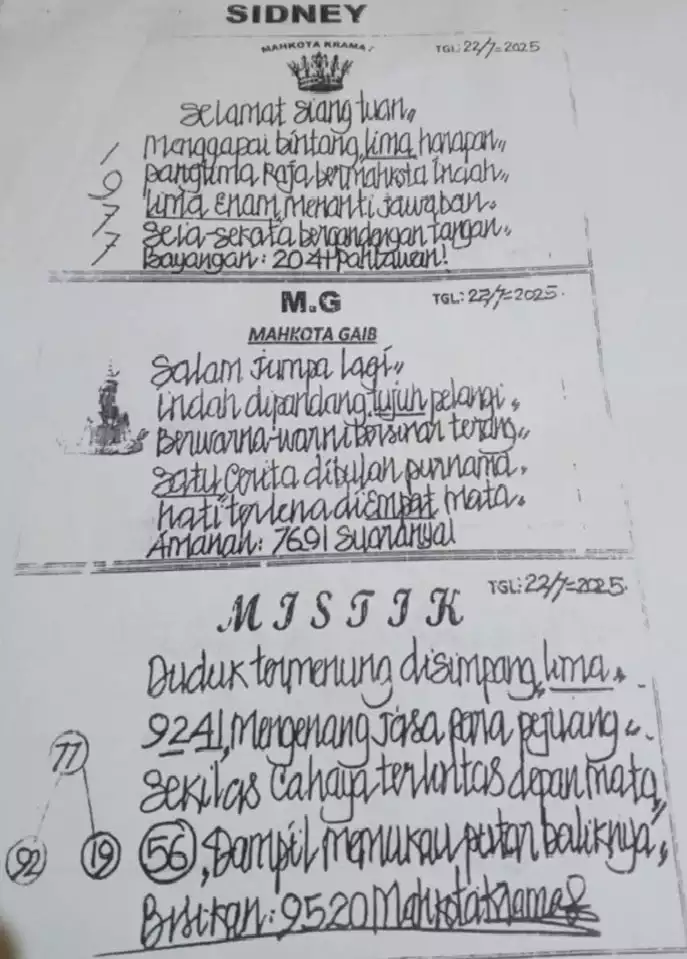 SIDNEY
MAHKOTA KRAMAT
TGL: 22/7=2025
Selamat siang tuan,,
Menggapai bintang, lima harapan,,
1
Panglima Raja bermahkota Indah,,
9
Lima Enam, Menanti jawaban.
7
Seia-sekata bergandengan tangan,,
7
Bayangan: 2041 Pahlawan!
M.G
TGL: 22/7=2025.
MAHKOTA GAIB
Salam jumpa lagi,,
Indah dipandang, tujuh pelangi,,
Berwarna-warni bersinar terang,,
Satu Cerita dibulan purnama.
Hati terlena di Empat mata.
Amanah: 7691 Suaranya!
MISTIK
TGL: 22/7=2025.
Duduk termenung disimpang, lima.
9241, Mengenang jasa para pejuang,,.
77
Sekilas Cahaya terlintas depan mata,,
92 19 56, Tampil memukau putar baliknya,,
Bisikan: 9520 Mahkota Kramat